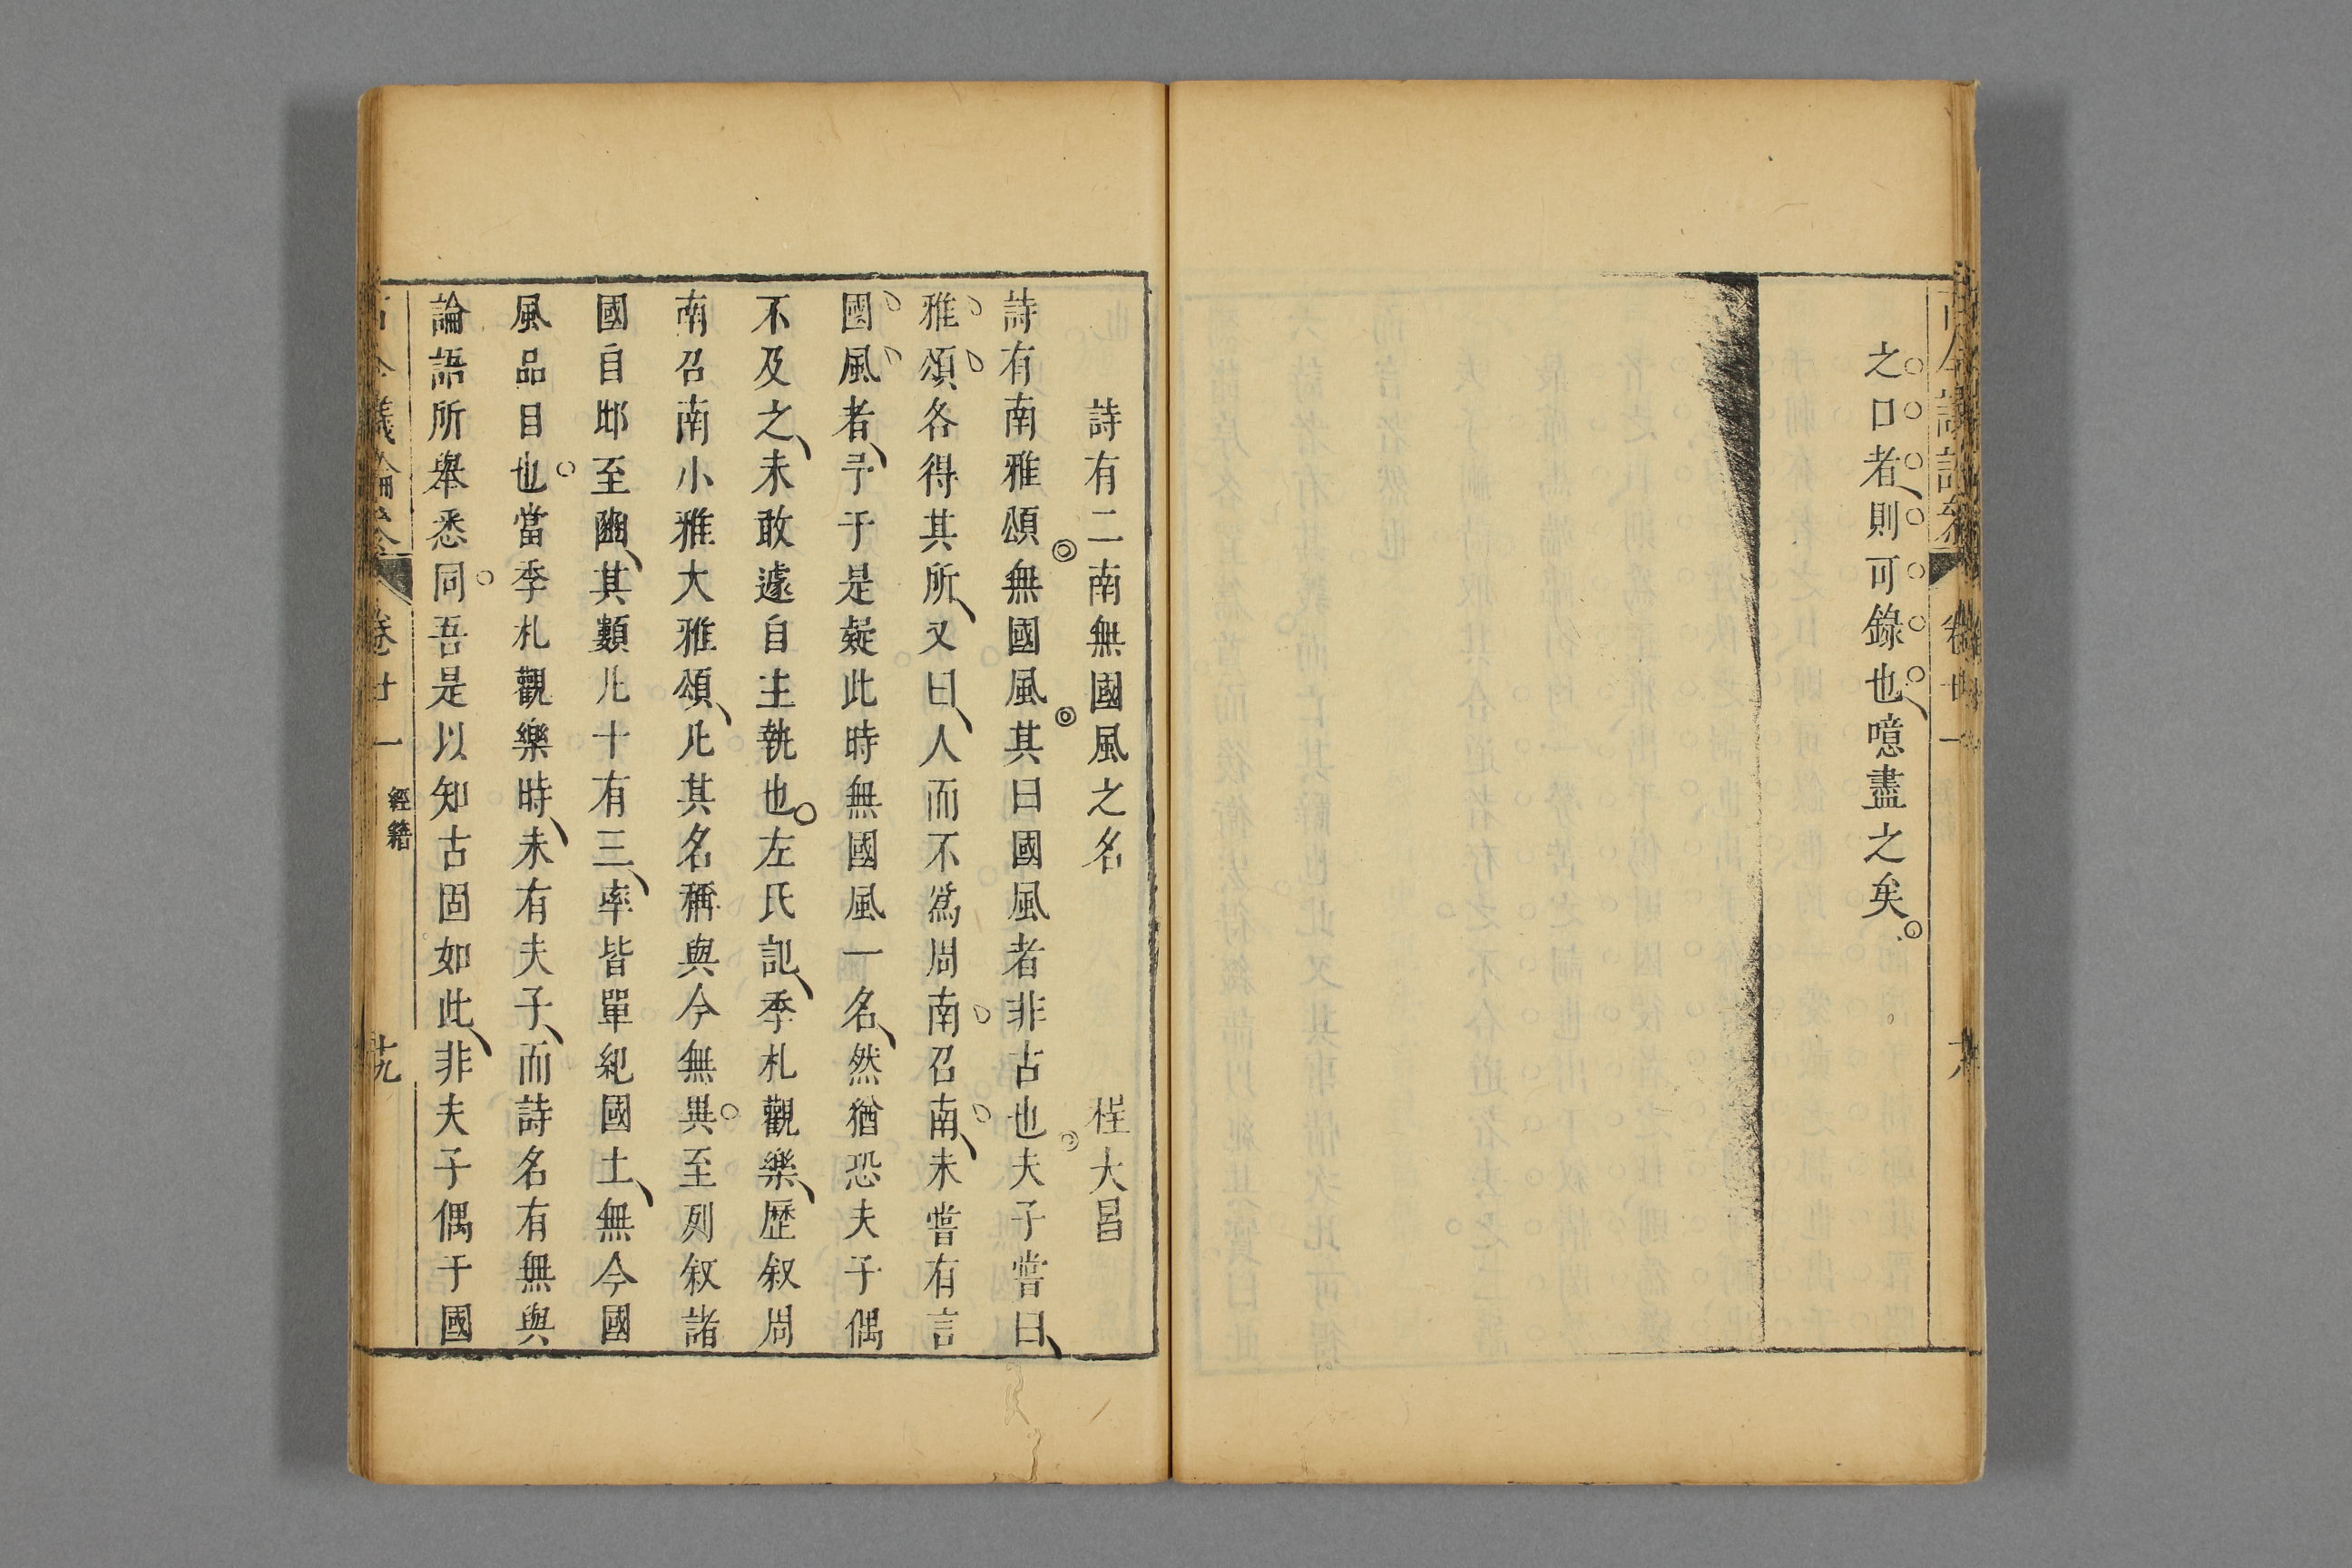 之口者則可錄也噫盡之矣
詩有二南無國風之名 程大昌
詩有南雅頌無國風其曰國風者非古也夫子嘗曰
雅頌各得其所又曰人而不爲周南召南未嘗有言
國風者予于是疑此時無國風一名然猶恐夫子偶
不及之未敢遽自主執也左氏記季札觀樂歷叙周
南召南小雅大雅頌凡其名稱與今無異至列叙諸
國自邶至豳其類凡十有三率皆單紀國土無今國
風品目也當季札觀樂時未有夫子而詩名有無與
論語所舉悉同吾是以知古固如此非夫子偶于國
古今議論參 卷廿一 經籍 十九